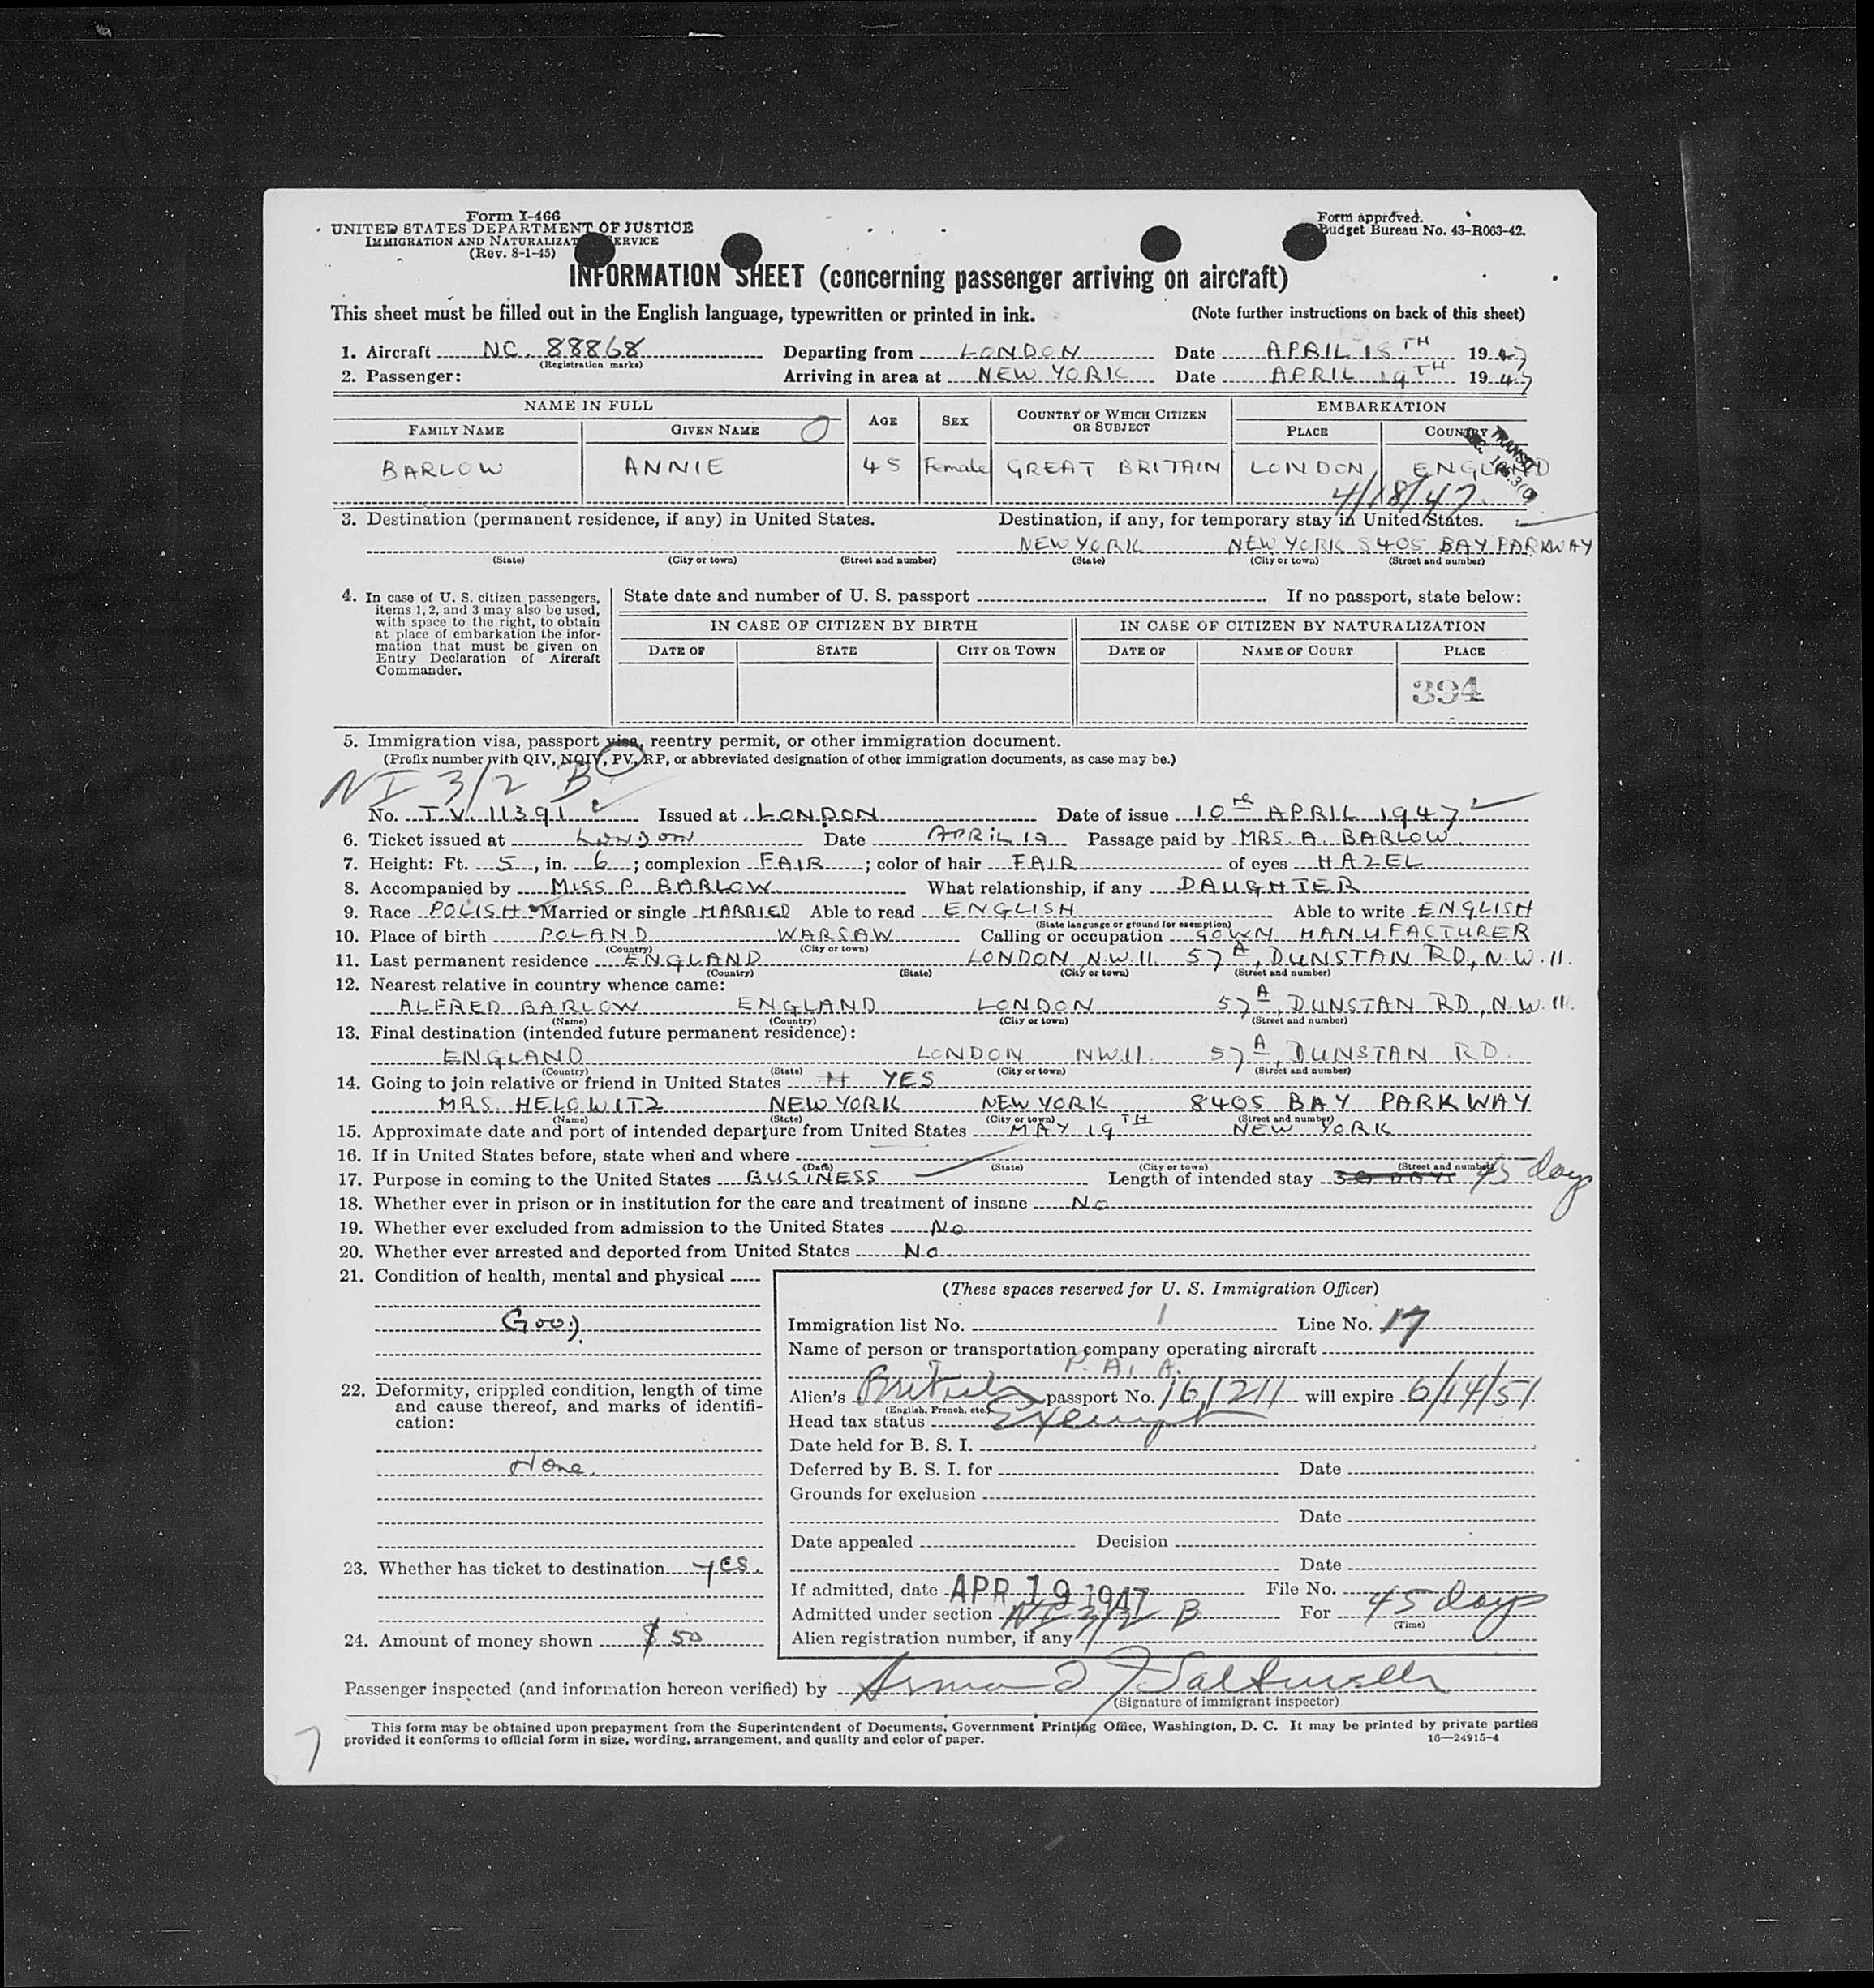 Form I-466
UNITED STATES DEPARTMENT OF JUSTICE
IMMIGRATION AND NATURALIZATION SERVICE
(Rev. 8-1-45)
Form approved.
Budget Bureau No. 43-R063-42.
INFORMATION SHEET (concerning passenger arriving on aircraft)
This sheet must be filled out in the English language, typewritten or printed in ink. (Note further instructions on back of this sheet)
1. Aircraft NC. 88868 Departing from LONDON Date APRIL 18TH 1947
(Registration marks)
2. Passenger: Arriving in area at NEW YORK Date APRIL 19TH 1947
NAME IN FULL AGE SEX COUNTRY OF WHICH CITIZEN OR SUBJECT EMBARKATION
FAMILY NAME GIVEN NAME PLACE COUNTRY
BARLOW ANNIE 45 Female GREAT BRITAIN LONDON ENGLAND
4/18/47
3. Destination (permanent residence, if any) in United States. Destination, if any, for temporary stay in United States.
NEW YORK NEW YORK 8405 BAY PARKWAY
(State) (City or town) (Street and number) (State) (City or town) (Street and number)
4. In case of U. S. citizen passengers, items 1, 2, and 3 may also be used, with space to the right, to obtain at place of embarkation the information that must be given on Entry Declaration of Aircraft Commander.
State date and number of U. S. passport If no passport, state below:
IN CASE OF CITIZEN BY BIRTH IN CASE OF CITIZEN BY NATURALIZATION
DATE OF STATE CITY OR TOWN DATE OF NAME OF COURT PLACE
394
5. Immigration visa, passport visa, reentry permit, or other immigration document.
(Prefix number with QIV, NQIV, PV, RP, or abbreviated designation of other immigration documents, as case may be.)
NI 3/2 B
No. T.V. 11391 Issued at LONDON Date of issue 10TH APRIL 1947
6. Ticket issued at LONDON Date APRIL 12 Passage paid by MRS. A. BARLOW
7. Height: Ft. 5, in. 6; complexion FAIR; color of hair FAIR of eyes HAZEL
8. Accompanied by MISS P. BARLOW What relationship, if any DAUGHTER
9. Race POLISH Married or single MARRIED Able to read ENGLISH Able to write ENGLISH
(State language or ground for exemption)
10. Place of birth POLAND WARSAW Calling or occupation GOWN MANUFACTURER
(Country) (City or town)
11. Last permanent residence ENGLAND LONDON N.W.11. 57A, DUNSTAN RD, N.W.11.
(Country) (State) (City or town) (Street and number)
12. Nearest relative in country whence came:
ALFRED BARLOW ENGLAND LONDON 57A, DUNSTAN RD, N.W.11.
(Name) (Country) (City or town) (Street and number)
13. Final destination (intended future permanent residence):
ENGLAND LONDON NW11. 57A, DUNSTAN RD.
(Country) (State) (City or town) (Street and number)
14. Going to join relative or friend in United States YES
MRS. HELOWITZ NEW YORK NEW YORK 8405 BAY PARKWAY
(Name) (State) (City or town) (Street and number)
15. Approximate date and port of intended departure from United States MAY 19TH NEW YORK
16. If in United States before, state when and where
(Date) (State) (City or town) (Street and number)
17. Purpose in coming to the United States BUSINESS Length of intended stay 30 DAYS 45 days
18. Whether ever in prison or in institution for the care and treatment of insane No
19. Whether ever excluded from admission to the United States No
20. Whether ever arrested and deported from United States No
21. Condition of health, mental and physical
Good
22. Deformity, crippled condition, length of time and cause thereof, and marks of identification:
None.
23. Whether has ticket to destination yes.
24. Amount of money shown $50
(These spaces reserved for U. S. Immigration Officer)
Immigration list No. 1 Line No. 17
Name of person or transportation company operating aircraft
P. A. A.
Alien's British passport No. 161211 will expire 6/14/51
(English, French, etc.)
Head tax status Exempt
Date held for B. S. I.
Deferred by B. S. I. for Date
Grounds for exclusion
Date
Date appealed Decision
Date
If admitted, date APR 19 1947 File No.
Admitted under section NI 3/2 B For 45 days
(Time)
Alien registration number, if any
Passenger inspected (and information hereon verified) by
(Signature of immigrant inspector)
This form may be obtained upon prepayment from the Superintendent of Documents, Government Printing Office, Washington, D. C. It may be printed by private parties
provided it conforms to official form in size, wording, arrangement, and quality and color of paper. 16—24915-4
7